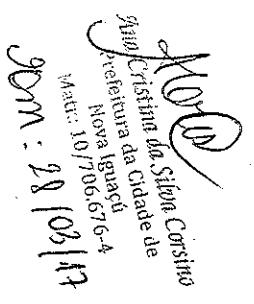 Ana Cristina da Silva Corsino
Prefeitura da Cidade de
Nova Iguaçú
Matr.: 10/706.676-4
Em: 28/03/17